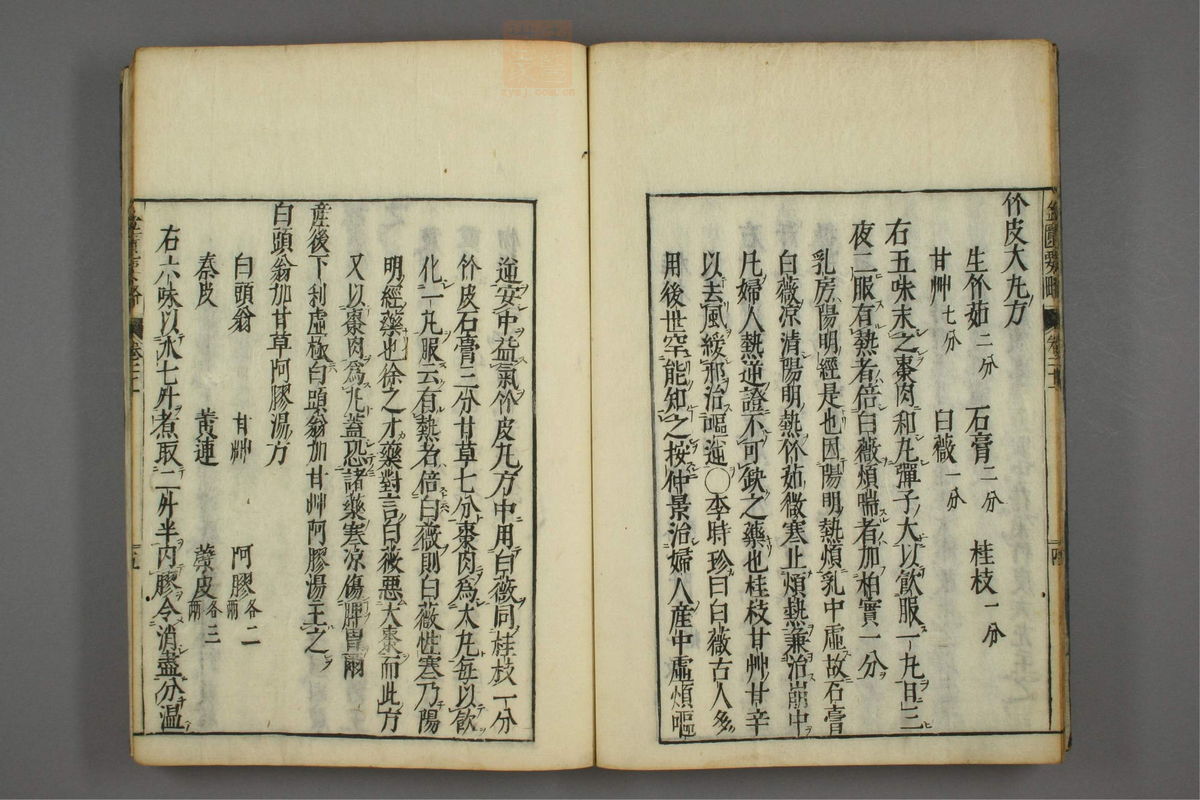 竹皮大丸方
生竹茹二分 石膏二分 桂枝一分
甘艸七分 白薇一分
右五味末之棗肉和丸彈子大以飮服一丸日三
夜二服有熱者倍白薇煩喘者加柏實一分
乳房陽明經是也因陽明熱煩乳中虛故石膏
白薇凉清陽明熱竹茹微寒止煩熱兼治崩中
凡婦人熱逆證不可缺之藥也桂枝甘艸甘辛
以去風緩邪治嘔逆〇李時珍曰白薇古人多
用後世罕能知之按仲景治婦人産中虛煩嘔
逆安中益氣竹皮丸方中用白薇同桂枝一分
竹皮石膏三分甘草七分棗肉爲大丸每以飮
化一丸服云有熱者倍白薇則白薇性寒乃陽
明經藥也徐之才藥對言白薇惡大棗而此方
又以棗肉爲丸蓋恐諸藥寒凉傷脾胃爾
産後下利虛極白頭翁加甘艸阿膠湯主之
白頭翁加甘草阿膠湯方
白頭翁 甘艸 阿膠各二兩
秦皮 黄連 蘗皮各三兩
右六味以水七升煮取二升半内膠令消盡分温
金匱要略 卷二十一 十四
zysj.com.cn